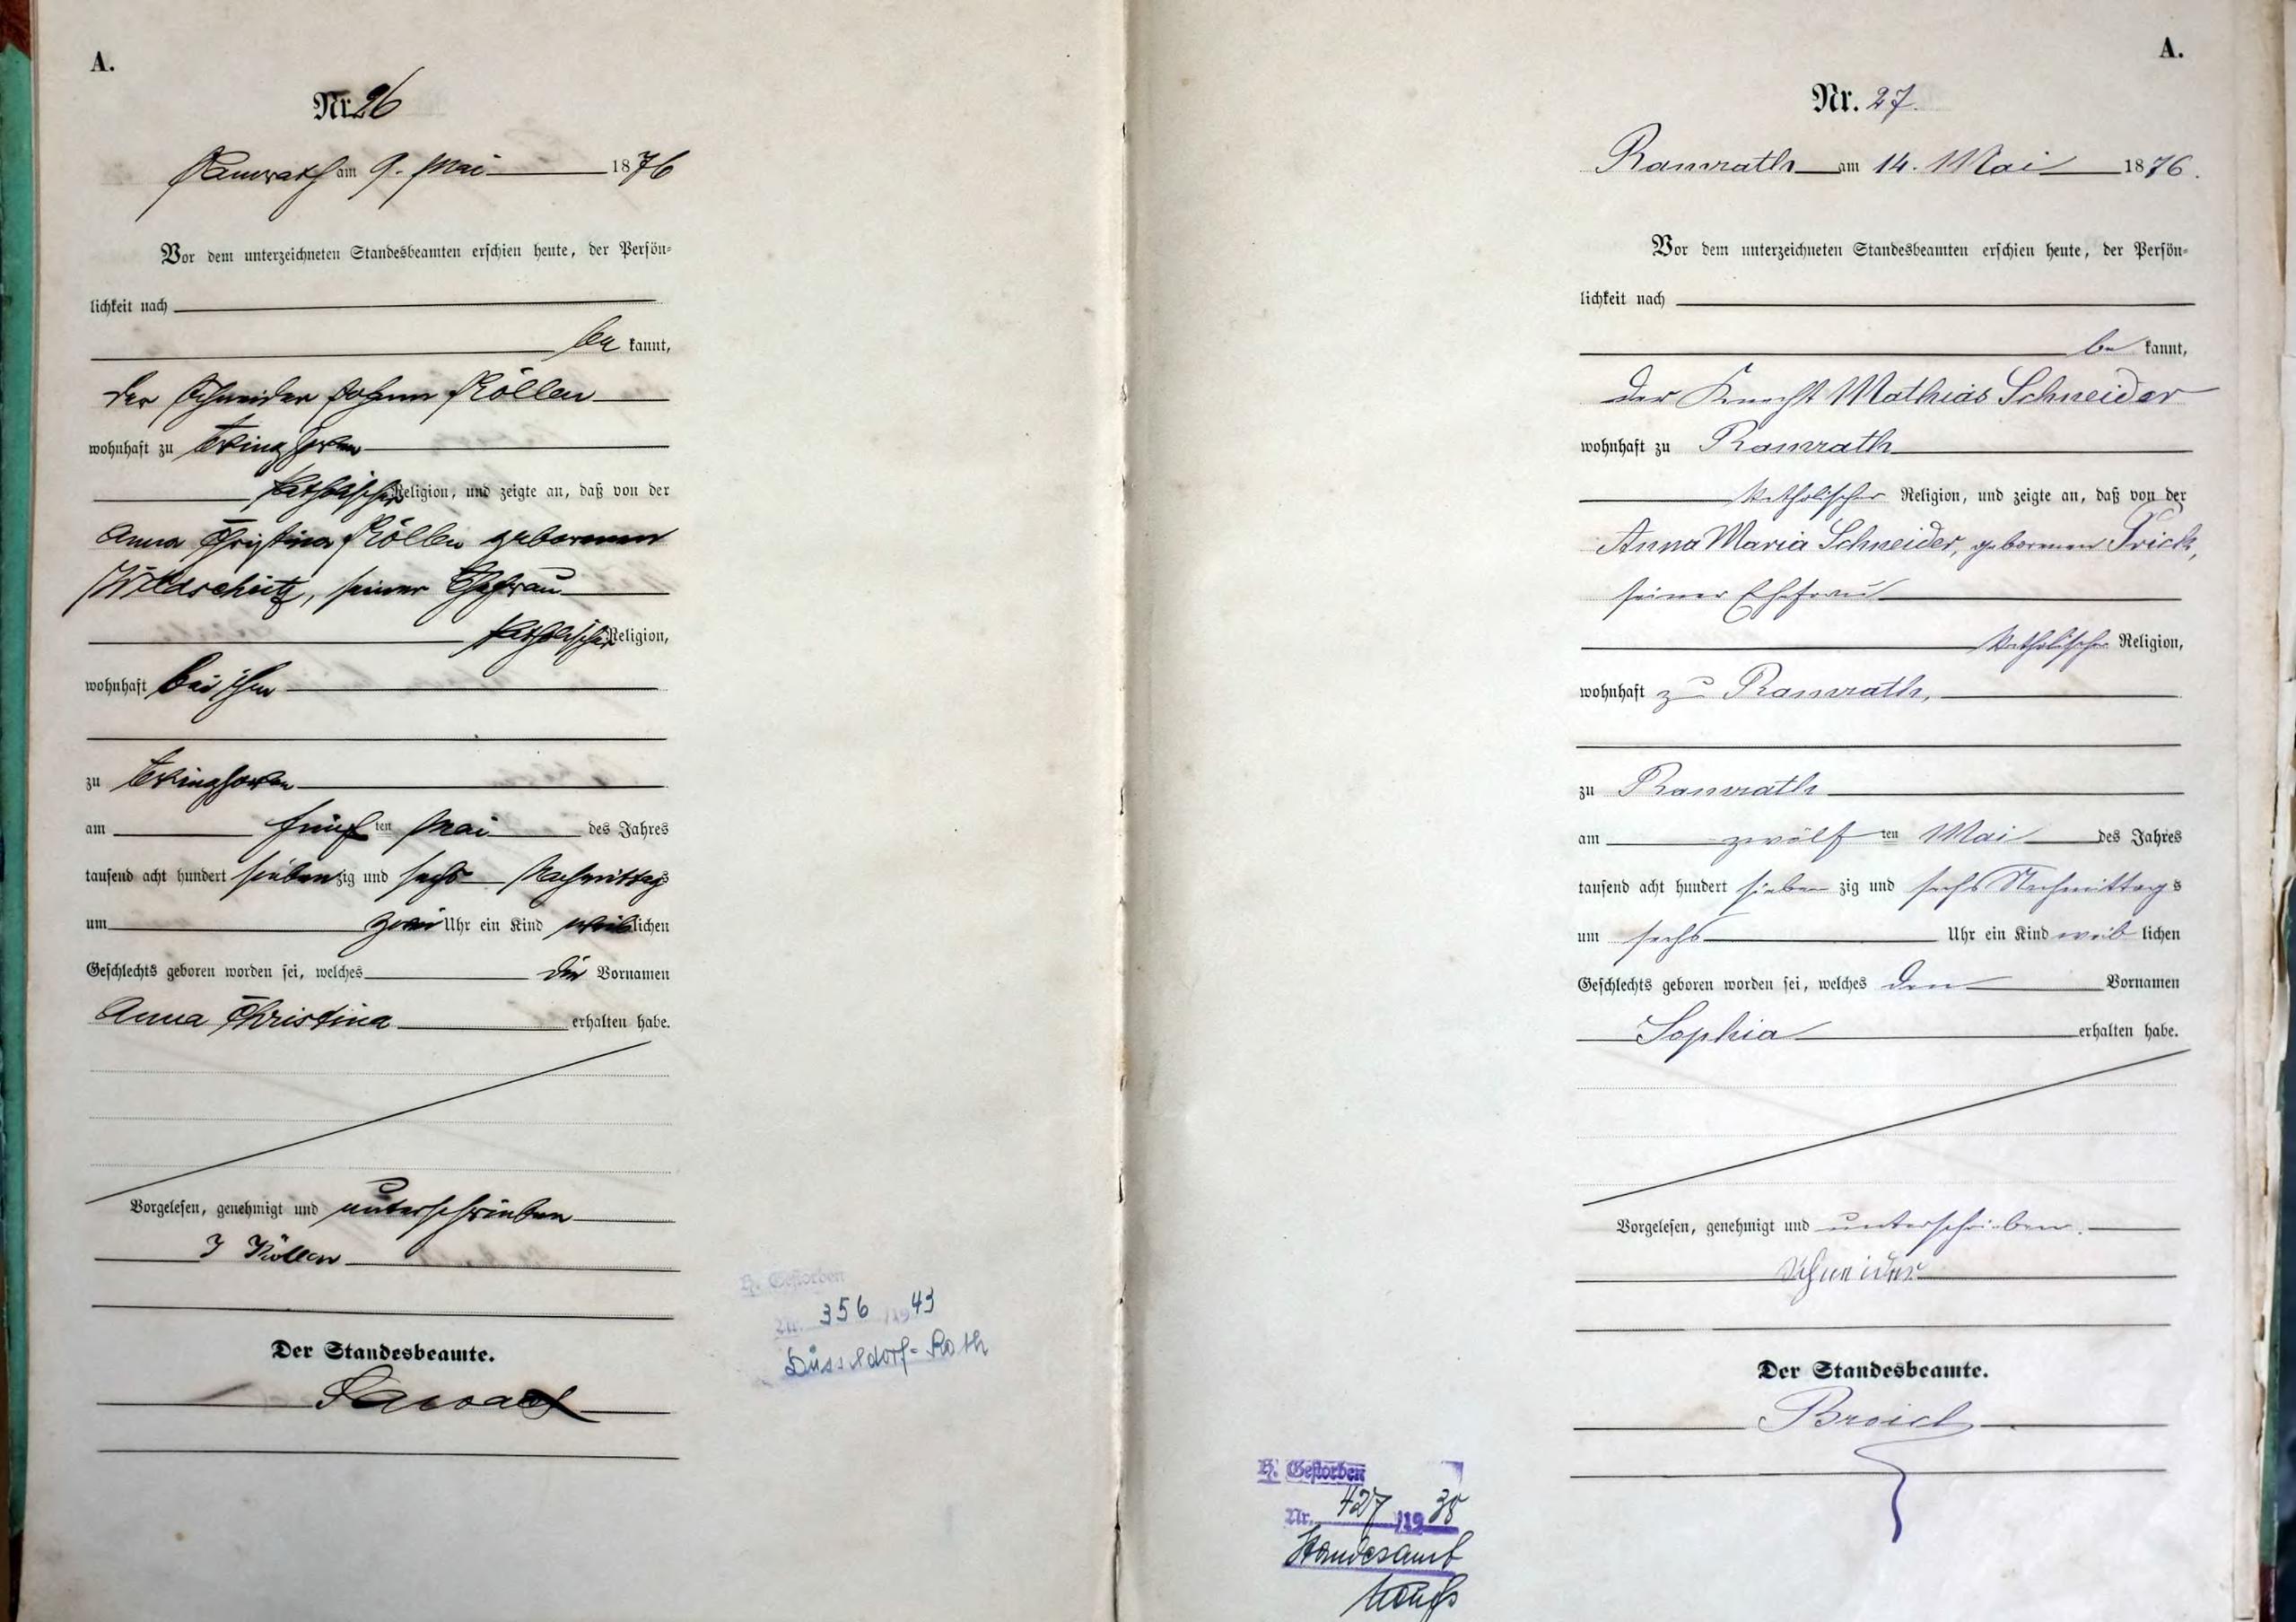 A.
Nr. 26
Ramrath am 9. Mai 1876
Vor dem unterzeichneten Standesbeamten erschien heute, der Persön-
lichkeit nach
be kannt,
der Schneider Johann Köllen
wohnhaft zu Evinghoven
katholischer Religion, und zeigte an, daß von der
Anna Christina Köllen geborenen
Wildschütz, seiner Ehefrau
katholischer Religion,
wohnhaft bei ihm
zu Evinghoven
am fünf ten Mai des Jahres
tausend acht hundert siebenzig und sechs Nachmittags
um zwei Uhr ein Kind weiblichen
Geschlechts geboren worden sei, welches die Vornamen
Anna Christina erhalten habe.
Vorgelesen, genehmigt und unterschrieben
J Köllen
Der Standesbeamte.
H. Gestorben
Nr. 356 /1943
Düsseldorf-Rath
A.
Nr. 27.
Ramrath am 14. Mai 1876.
Vor dem unterzeichneten Standesbeamten erschien heute, der Persön-
lichkeit nach
be kannt,
der Knecht Mathias Schneider
wohnhaft zu Ramrath
katholischer Religion, und zeigte an, daß von der
Anna Maria Schneider, geborenen Frick,
seiner Ehefrau
katholischer Religion,
wohnhaft zu Ramrath,
zu Ramrath
am zwölf ten Mai des Jahres
tausend acht hundert sieben zig und sechs Nachmittags
um sechs Uhr ein Kind weib lichen
Geschlechts geboren worden sei, welches den Vornamen
Sophia erhalten habe.
Vorgelesen, genehmigt und unterschrieben.
Schneider
Der Standesbeamte.
Broich
H. Gestorben
Nr. 427 /1938
Standesamt
Neuß